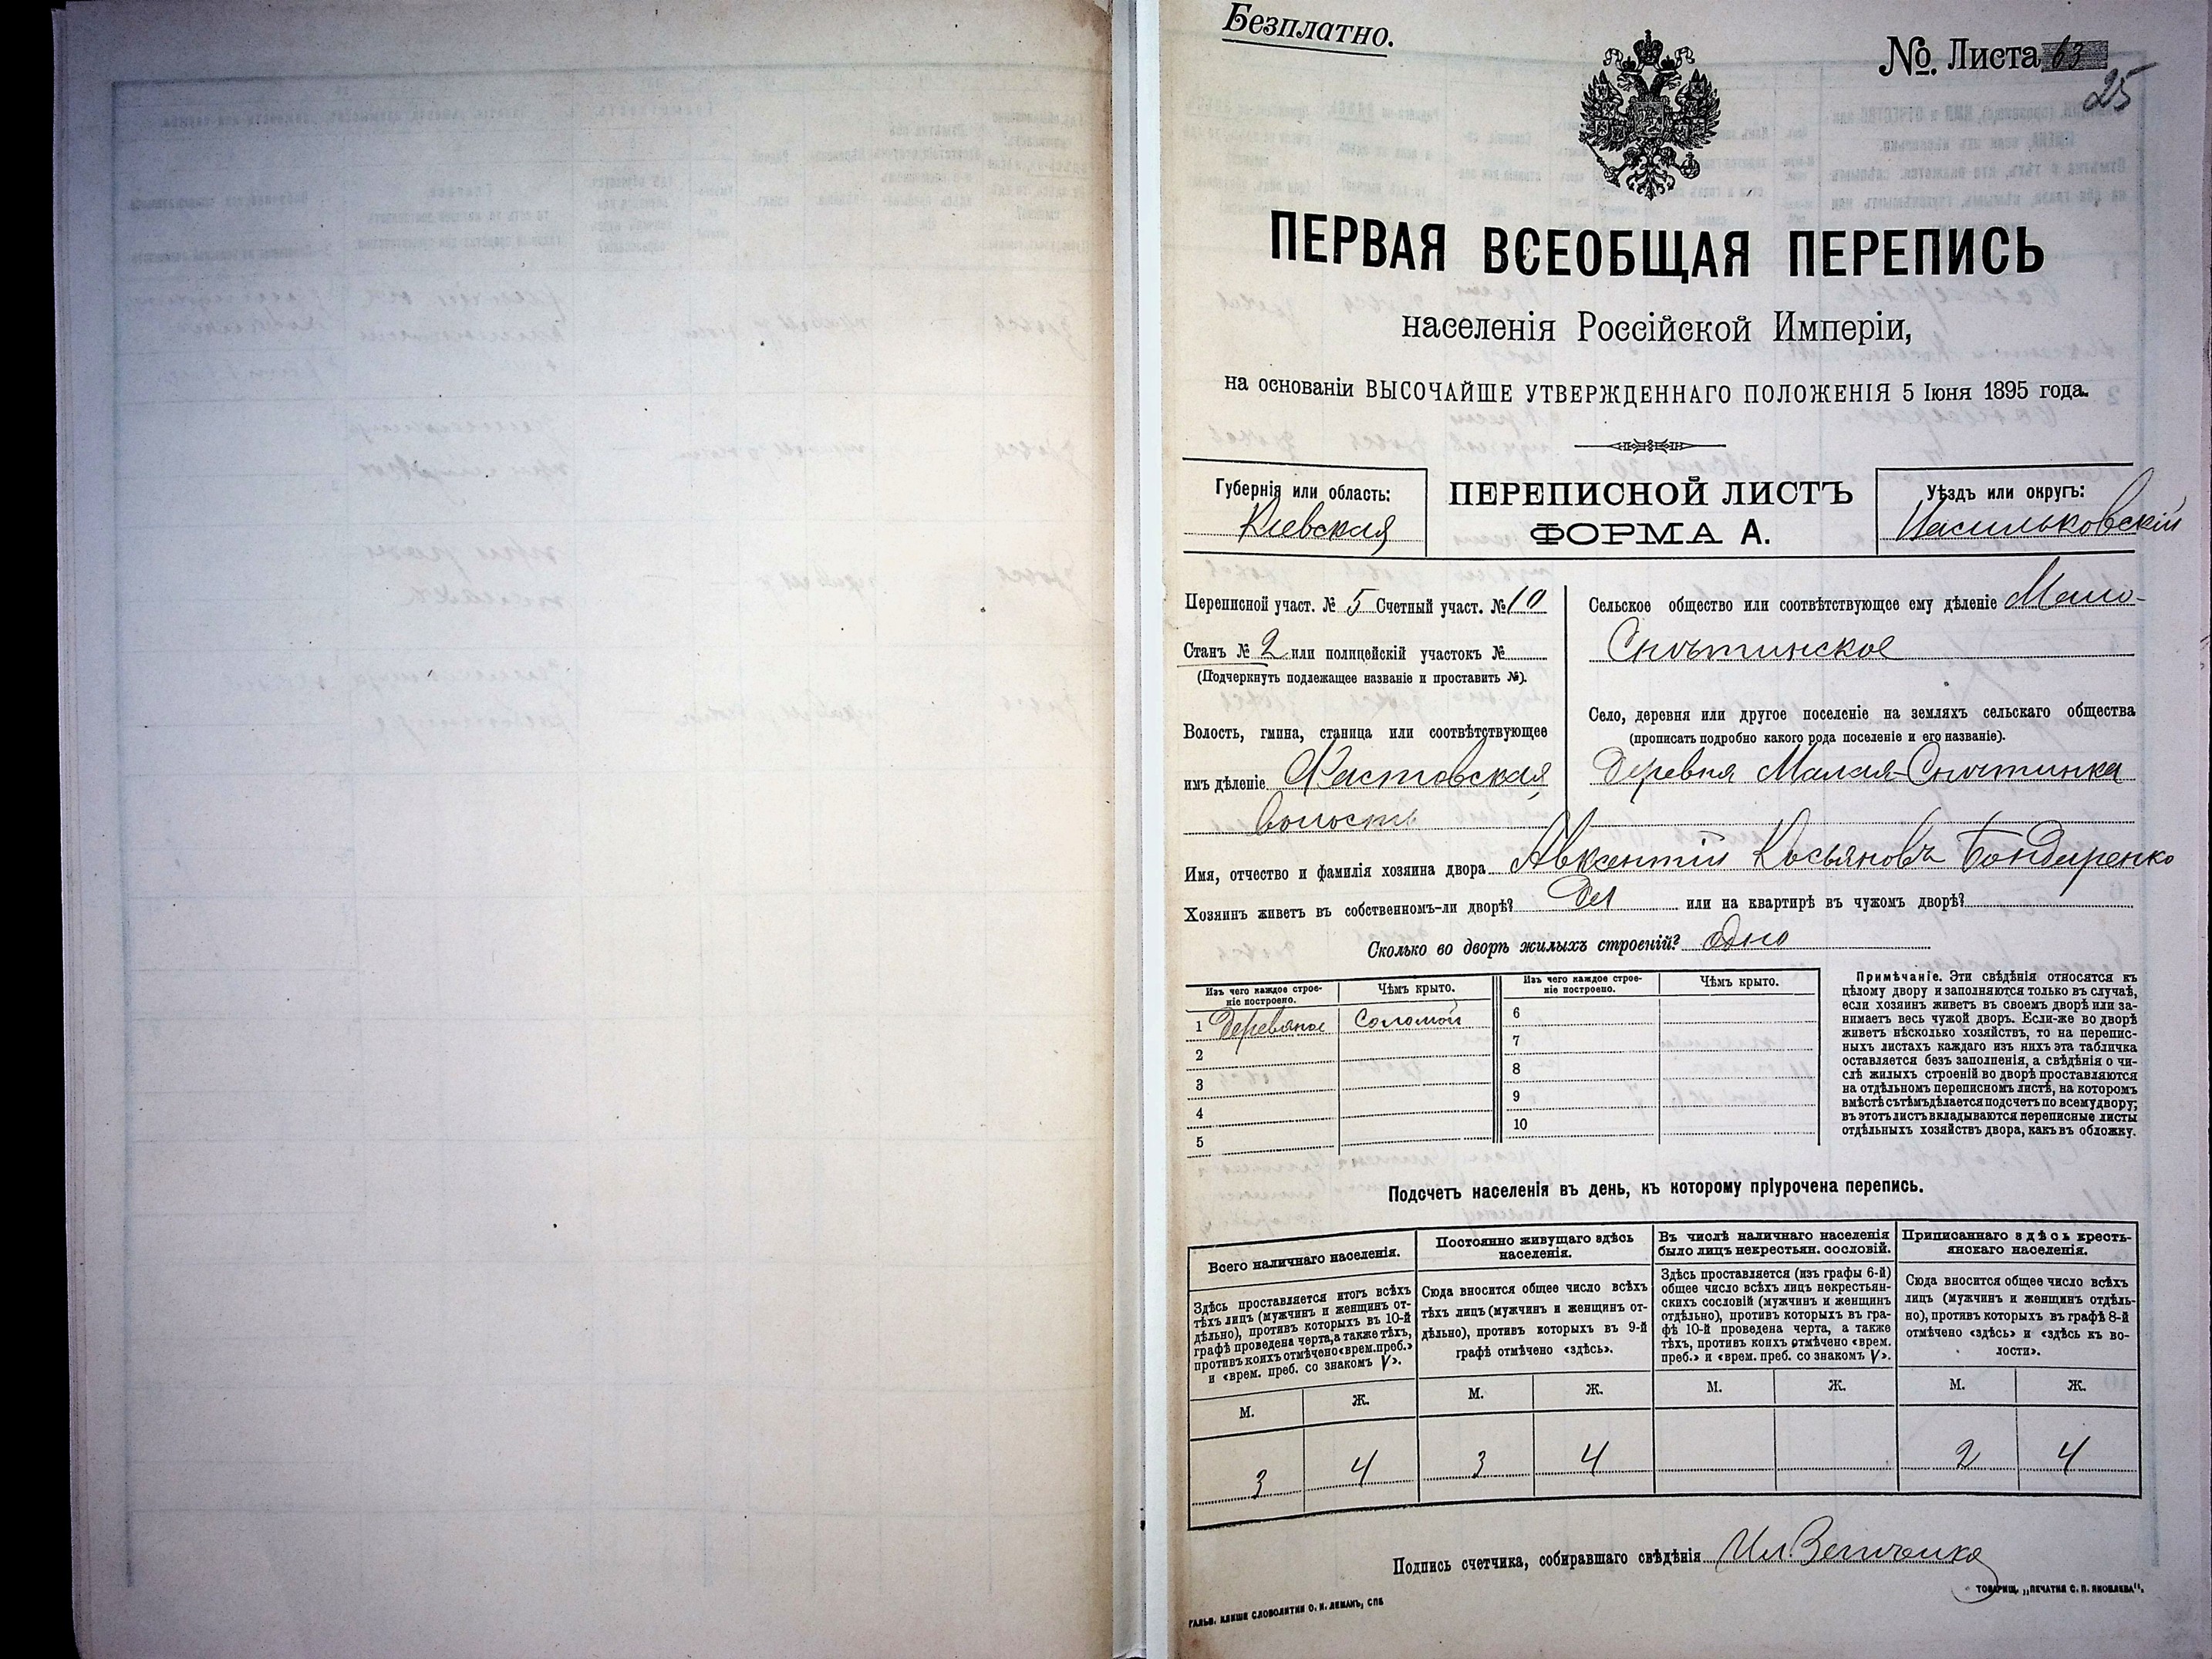 Безплатно.
№ Листа 63
25
ПЕРВАЯ ВСЕОБЩАЯ ПЕРЕПИСЬ
населенія Россійской Имперіи,
на основаніи ВЫСОЧАЙШЕ УТВЕРЖДЕННАГО ПОЛОЖЕНІЯ 5 Іюня 1895 года.
Губернія или область:
Кіевская
ПЕРЕПИСНОЙ ЛИСТЪ
ФОРМА А.
Уѣздъ или округъ:
Васильковскій
Переписной участ. № 5 Счетный участ. № 10
Станъ № 2 или полицейскій участокъ №
(Подчеркнуть подлежащее названіе и проставить №).
Волость, гмина, станица или соотвѣтствующее
имъ дѣленіе Фастовская
волость
Сельское общество или соотвѣтствующее ему дѣленіе Мало-
Снѣтинское
Село, деревня или другое поселеніе на земляхъ сельскаго общества
(прописать подробно какого рода поселеніе и его названіе).
Деревня Малая-Снѣтинка
Имя, отчество и фамилія хозяина двора Авксентій Касьяновъ Бондаренко
Хозяинъ живетъ въ собственномъ-ли дворѣ? Да или на квартирѣ въ чужомъ дворѣ?
Сколько во дворѣ жилыхъ строеній? одно
Изъ чего каждое строе-
ніе построено.
Чѣмъ крыто.
Изъ чего каждое строе-
ніе построено.
Чѣмъ крыто.
1 Деревяное Соломой 6
2 7
3 8
4 9
5 10
Примѣчаніе. Эти свѣдѣнія относятся къ
цѣлому двору и заполняются только въ случаѣ,
если хозяинъ живетъ въ своемъ дворѣ или за-
нимаетъ весь чужой дворъ. Если-же во дворѣ
живетъ нѣсколько хозяйствъ, то на перепис-
ныхъ листахъ каждаго изъ нихъ эта табличка
оставляется безъ заполненія, а свѣдѣнія о чи-
слѣ жилыхъ строеній во дворѣ проставляются
на отдѣльномъ переписномъ листѣ, на которомъ
вмѣстѣ съ тѣмъ дѣлается подсчетъ по всему двору;
въ этотъ листъ вкладываются переписные листы
отдѣльныхъ хозяйствъ двора, какъ въ обложку.
Подсчетъ населенія въ день, къ которому пріурочена перепись.
Всего наличнаго населенія.
Здѣсь проставляется итогъ всѣхъ
тѣхъ лицъ (мужчинъ и женщинъ от-
дѣльно), противъ которыхъ въ 10-й
графѣ проведена черта, а также тѣхъ,
противъ коихъ отмѣчено «врем. преб.»
и «врем. преб. со знакомъ V».
М. Ж.
3 4
Постоянно живущаго здѣсь
населенія.
Сюда вносится общее число всѣхъ
тѣхъ лицъ (мужчинъ и женщинъ от-
дѣльно), противъ которыхъ въ 9-й
графѣ отмѣчено «здѣсь».
М. Ж.
3 4
Въ числѣ наличнаго населенія
было лицъ некрестьян. сословій.
Здѣсь проставляется (изъ графы 6-й)
общее число всѣхъ лицъ некрестьян-
скихъ сословій (мужчинъ и женщинъ
отдѣльно), противъ которыхъ въ гра-
фѣ 10-й проведена черта, а также
тѣхъ, противъ коихъ отмѣчено «врем.
преб.» и «врем. преб. со знакомъ V».
М. Ж.
Приписаннаго здѣсь кресть-
янскаго населенія.
Сюда вносится общее число всѣхъ
лицъ (мужчинъ и женщинъ отдѣль-
но), противъ которыхъ въ графѣ 8-й
отмѣчено «здѣсь» и «здѣсь къ во-
лости».
М. Ж.
2 4
Подпись счетчика, собиравшаго свѣдѣнія Ил. Величенко
ГАЛЬВ. КЛИШЕ СЛОВОЛИТНИ О. И. ЛЕМАНЪ, СПБ
ТОВАРИЩ. „ПЕЧАТНЯ С. П. ЯКОВЛЕВА".